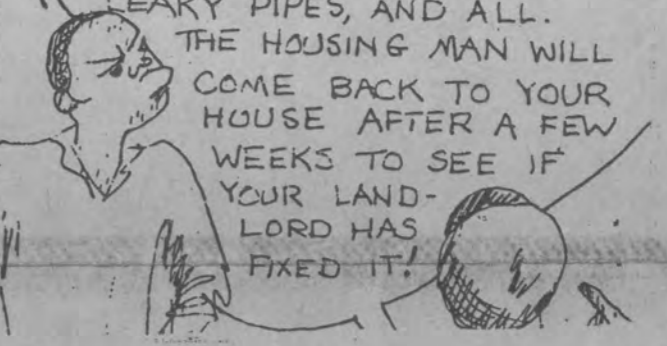 LEAKY PIPES, AND ALL.
THE HOUSING MAN WILL
COME BACK TO YOUR
HOUSE AFTER A FEW
WEEKS TO SEE IF
YOUR LAND-
LORD HAS
FIXED IT!